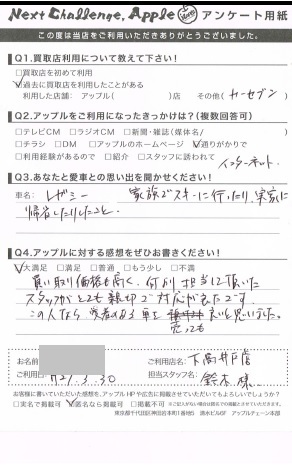 Next Challenge, Apple アンケート用紙
この度は当店をご利用いただきありがとうございました。
Q1.買取店利用について教えて下さい！
□買取店を初めて利用
☑過去に買取店を利用したことがある
利用した店舗： アップル（　　　）店　その他（カーセブン）
Q2.アップルをご利用になったきっかけは？（複数回答可）
□テレビCM □ラジオCM □新聞・雑誌（媒体名／　　　）
□チラシ □DM □アップルのホームページ ☑通りがかりで
□利用経験があるので □紹介 □スタッフに誘われて
インターネット.
Q3.あなたと愛車との思い出を聞かせください！
車名： レガシー 家族でスキーに行いたり、実家に
帰省したりしたこと.
Q4.アップルに対する感想をぜひお書きください！
☑大満足 □満足 □普通 □もう少し □不満
買い取り価格も高く、何より担当して頂いた
スタッフがとても親切で対応が良かったです。
この人なら 愛着のある車を 良いと思いました。
売っても
お名前
ご利用店名： 下高井戸店
ご利用日 '21.3.30
担当スタッフ名： 鈴木様
お客様に書いていただいた感想を、アップルHPや広告に掲載させていただいてもよろしいでしょうか？
□実名で掲載可 ☑匿名なら掲載可 □掲載不可
東京都千代田区神田岩本町1番地 清水ビル6F アップルチェーン本部